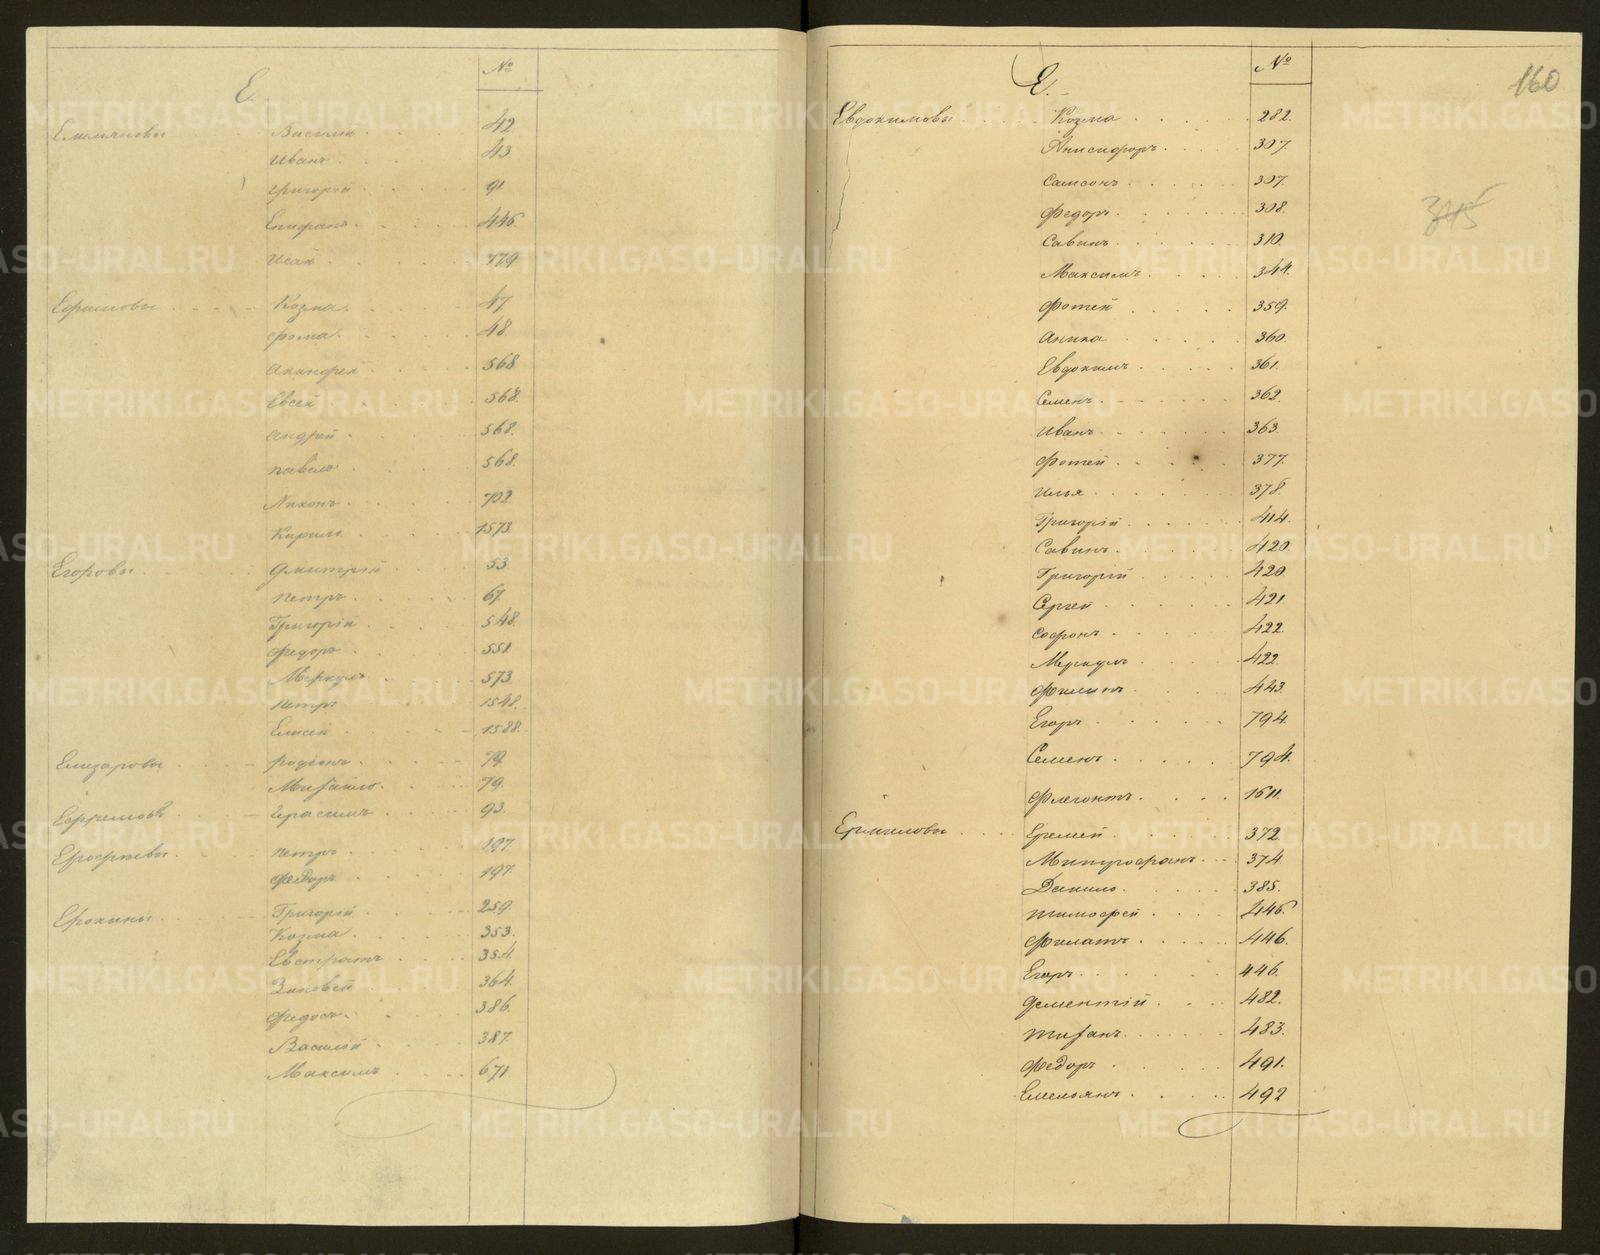 Е. №
Емельяновы Василій 42
Иванъ 43
Григорій 91
Епифанъ 446
Исак 779
Ефимовы Козма 47
Фома 48
568
Евсей 568
Андрей 568
Павелъ 568
Никонъ 702
Кирилъ 1573
Егоровы Дмитрій 53
Петръ 67
Григорій 548
Федоръ 551
Меркулъ 573
Петръ 1548
Елисей 1588
Елизаровы Родіонъ 79
Михайло 79
Ефремовъ Герасимъ 93
Ерофѣевы Петръ 197
Федоръ 197
Ерохины Григорій 259
Козма 353
Евстратъ 354
Зиновей 364
Федосъ 386
Василій 387
Максимъ 671
160
Е. №
Евдокимовы Козма 282
Анисифоръ 307
Самсонъ 307
Федоръ 308
Савинъ 310
Максимъ 344
Фотей 359
Аника 360
Евдокимъ 361
Семенъ 362
Иванъ 363
Фотей 377
Илья 378
Григорій 414
Савинъ 420
Григорій 420
Сергей 421
Софронъ 422
Меркулъ 422
Филипъ 443
Егоръ 794
Семенъ 794
Флегонтъ 1611
Ермиловы Еремей 372
Митрофанъ 374
Данило 385
Тимофей 446
Филатъ 446
Егоръ 446
Дементій 482
Тифанъ 483
Федоръ 491
Емельянъ 492
METRIKI.GASO-URAL.RU